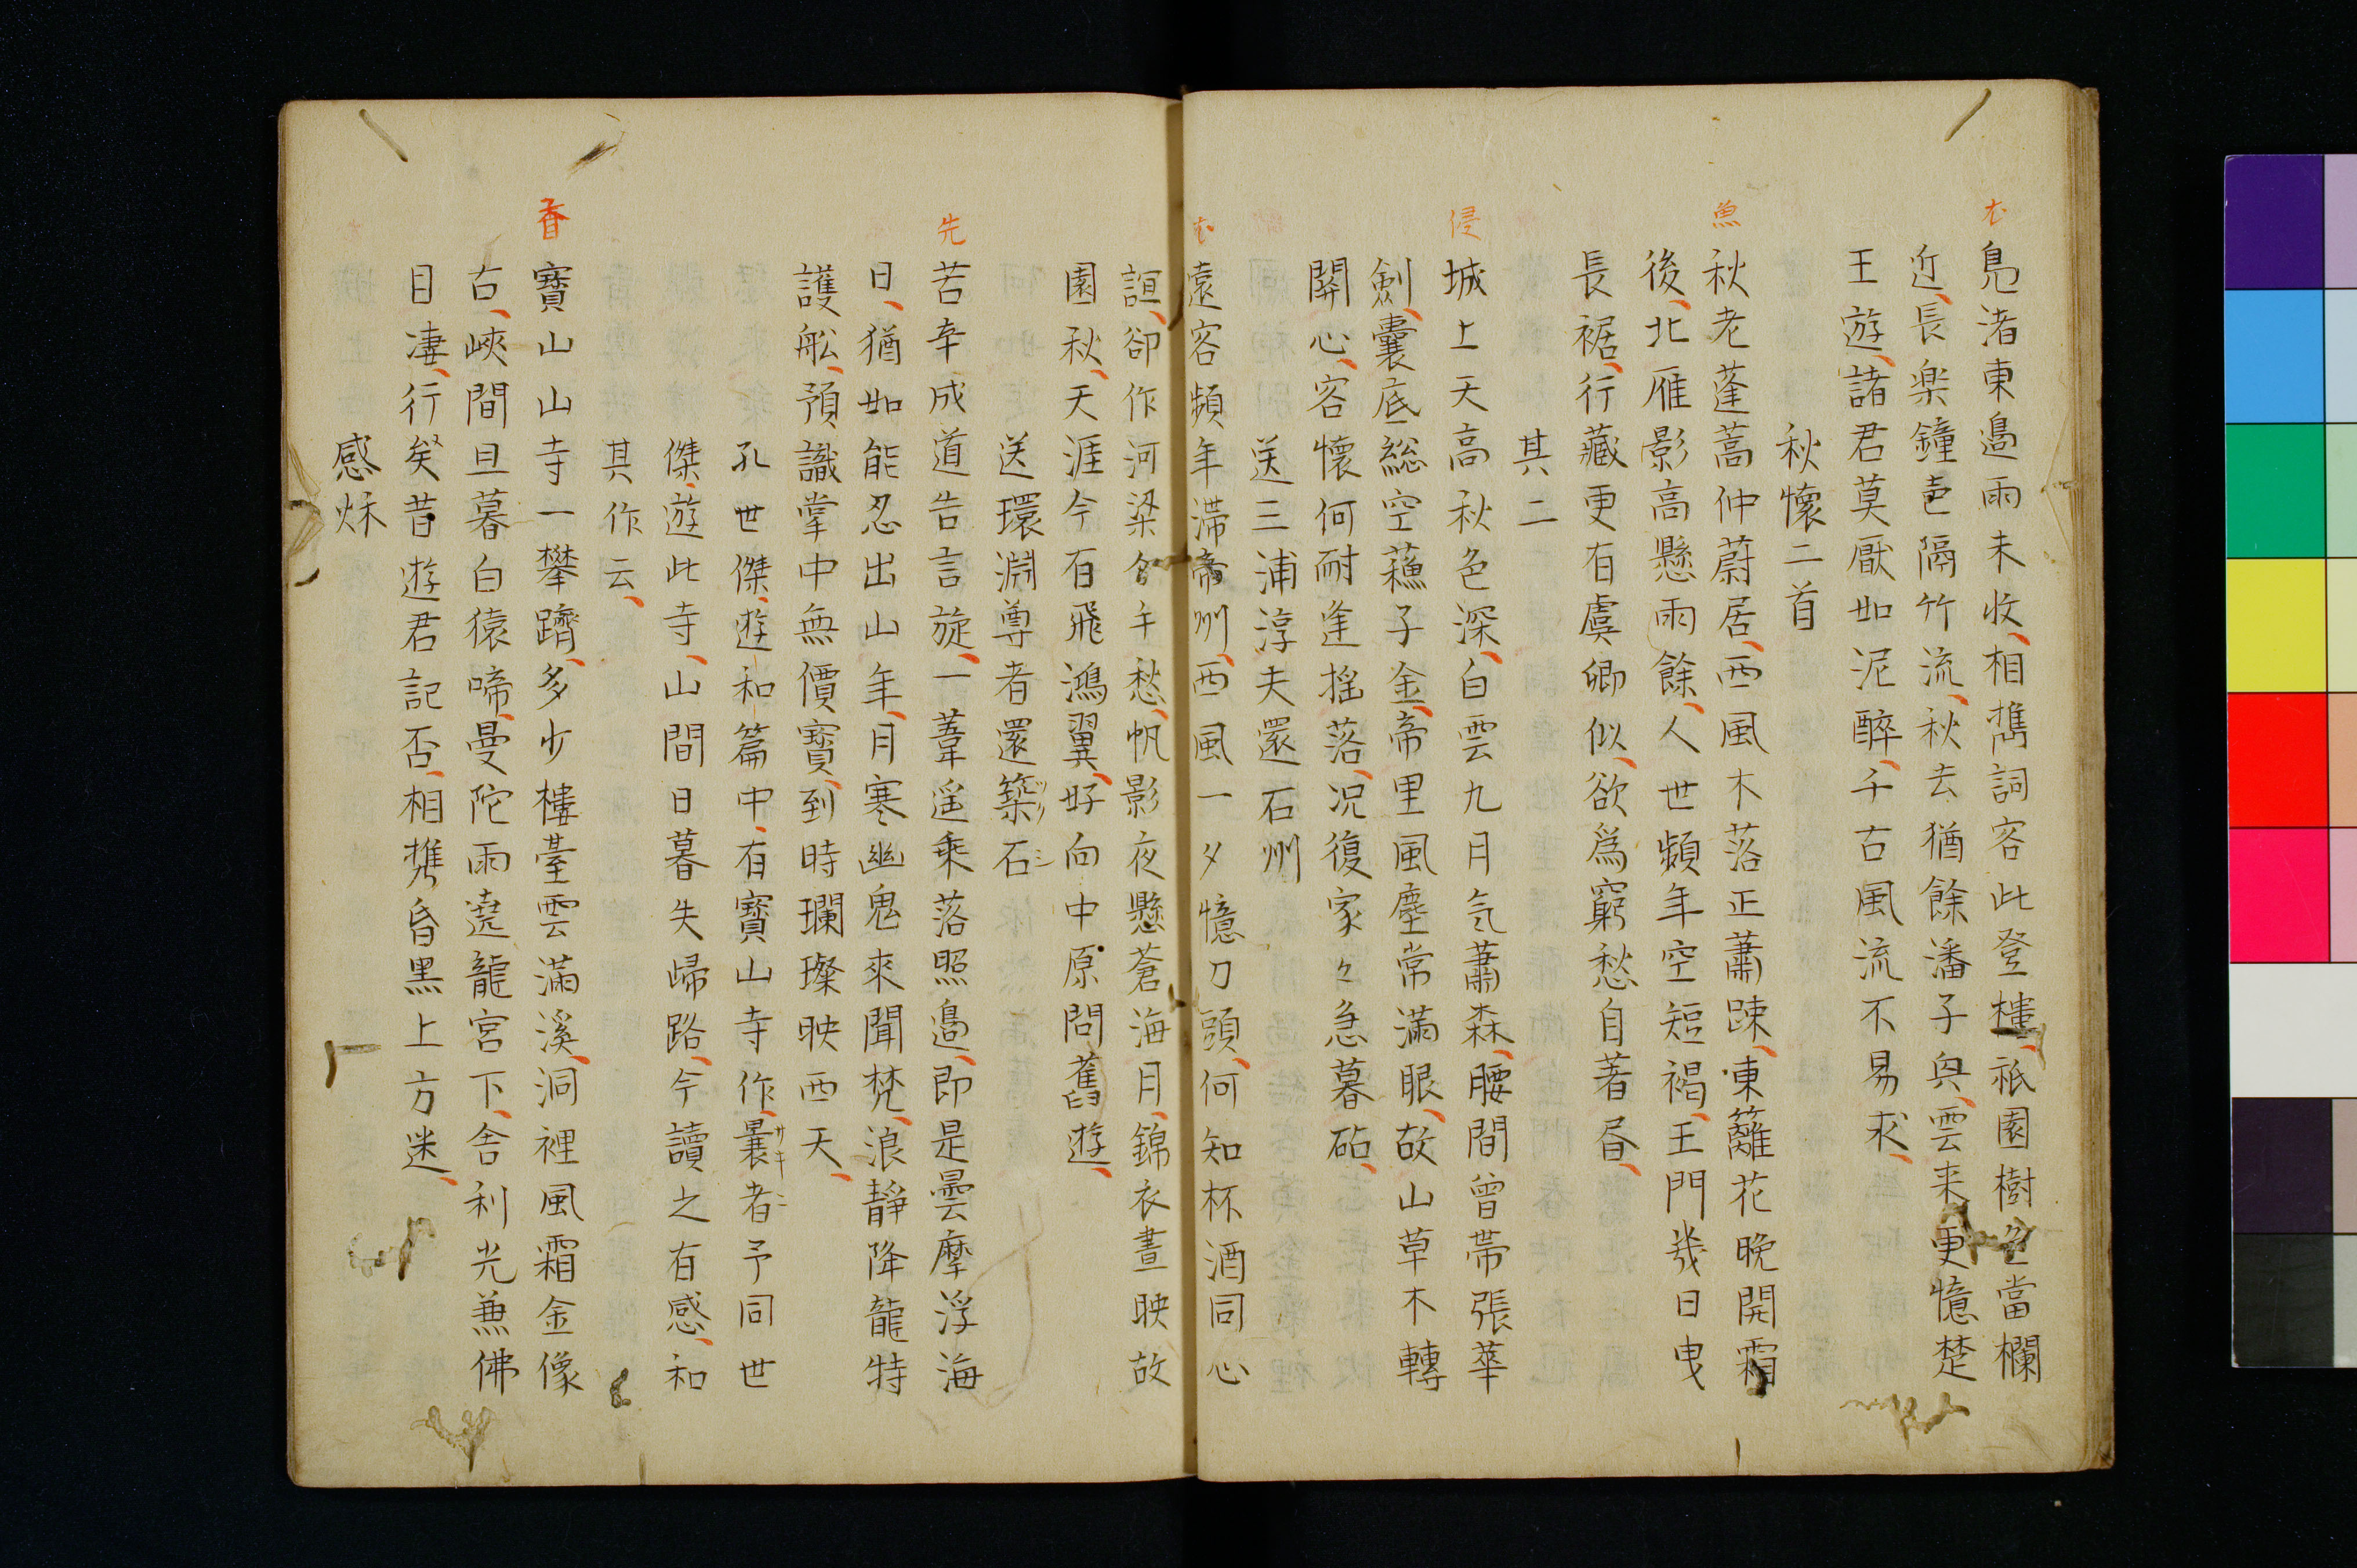 尤
鳧渚東邉雨未收相攜詞客此登樓祇園樹色當欄
近長楽鐘声隔竹流秋去猶餘潘子興雲来更憶楚
王遊諸君莫厭如泥醉千古風流不易求
秋懷二首
魚
秋老蓬蒿仲蔚居西風木落正蕭踈東籬花晩開霜
後北雁影高懸雨餘人世頻年空短褐王門幾日曳
長裾行藏更有虞卿似欲爲窮愁自著書
其二
侵
城上天高秋色深白雲九月気蕭森腰間曾帶張華
劍囊底総空蘓子金帝里風塵常滿眼故山草木轉
關心客懷何耐逢揺落况復家々急暮砧
送三浦淳夫還石州
尤
遠客頻年滞帝州西風一夕憶刀頭何知杯酒同心
誼卻作河梁分手愁帆影夜懸蒼海月錦衣晝映故
園秋天涯今有飛鴻翼好向中原問舊遊
送環淵尊者還築石
先
苦辛成道告言旋一葦遥乘落照邉即是曇摩浮海
日猶如能忍出山年月寒幽鬼來聞梵浪静降龍特
護舩預識掌中無價寳到時瓓璨映西天
孔世傑遊和篇中有寳山寺作曩者予同世
傑遊此寺山間日暮失歸路今讀之有感和
其作云
齊
寳山山寺一攀躋多少樓臺雲滿溪洞裡風霜金像
古峽間旦暮白猿啼曼陀雨遶龍宮下舎利光兼佛
日凄行矣昔遊君記否相携昏黒上方迷
感秌